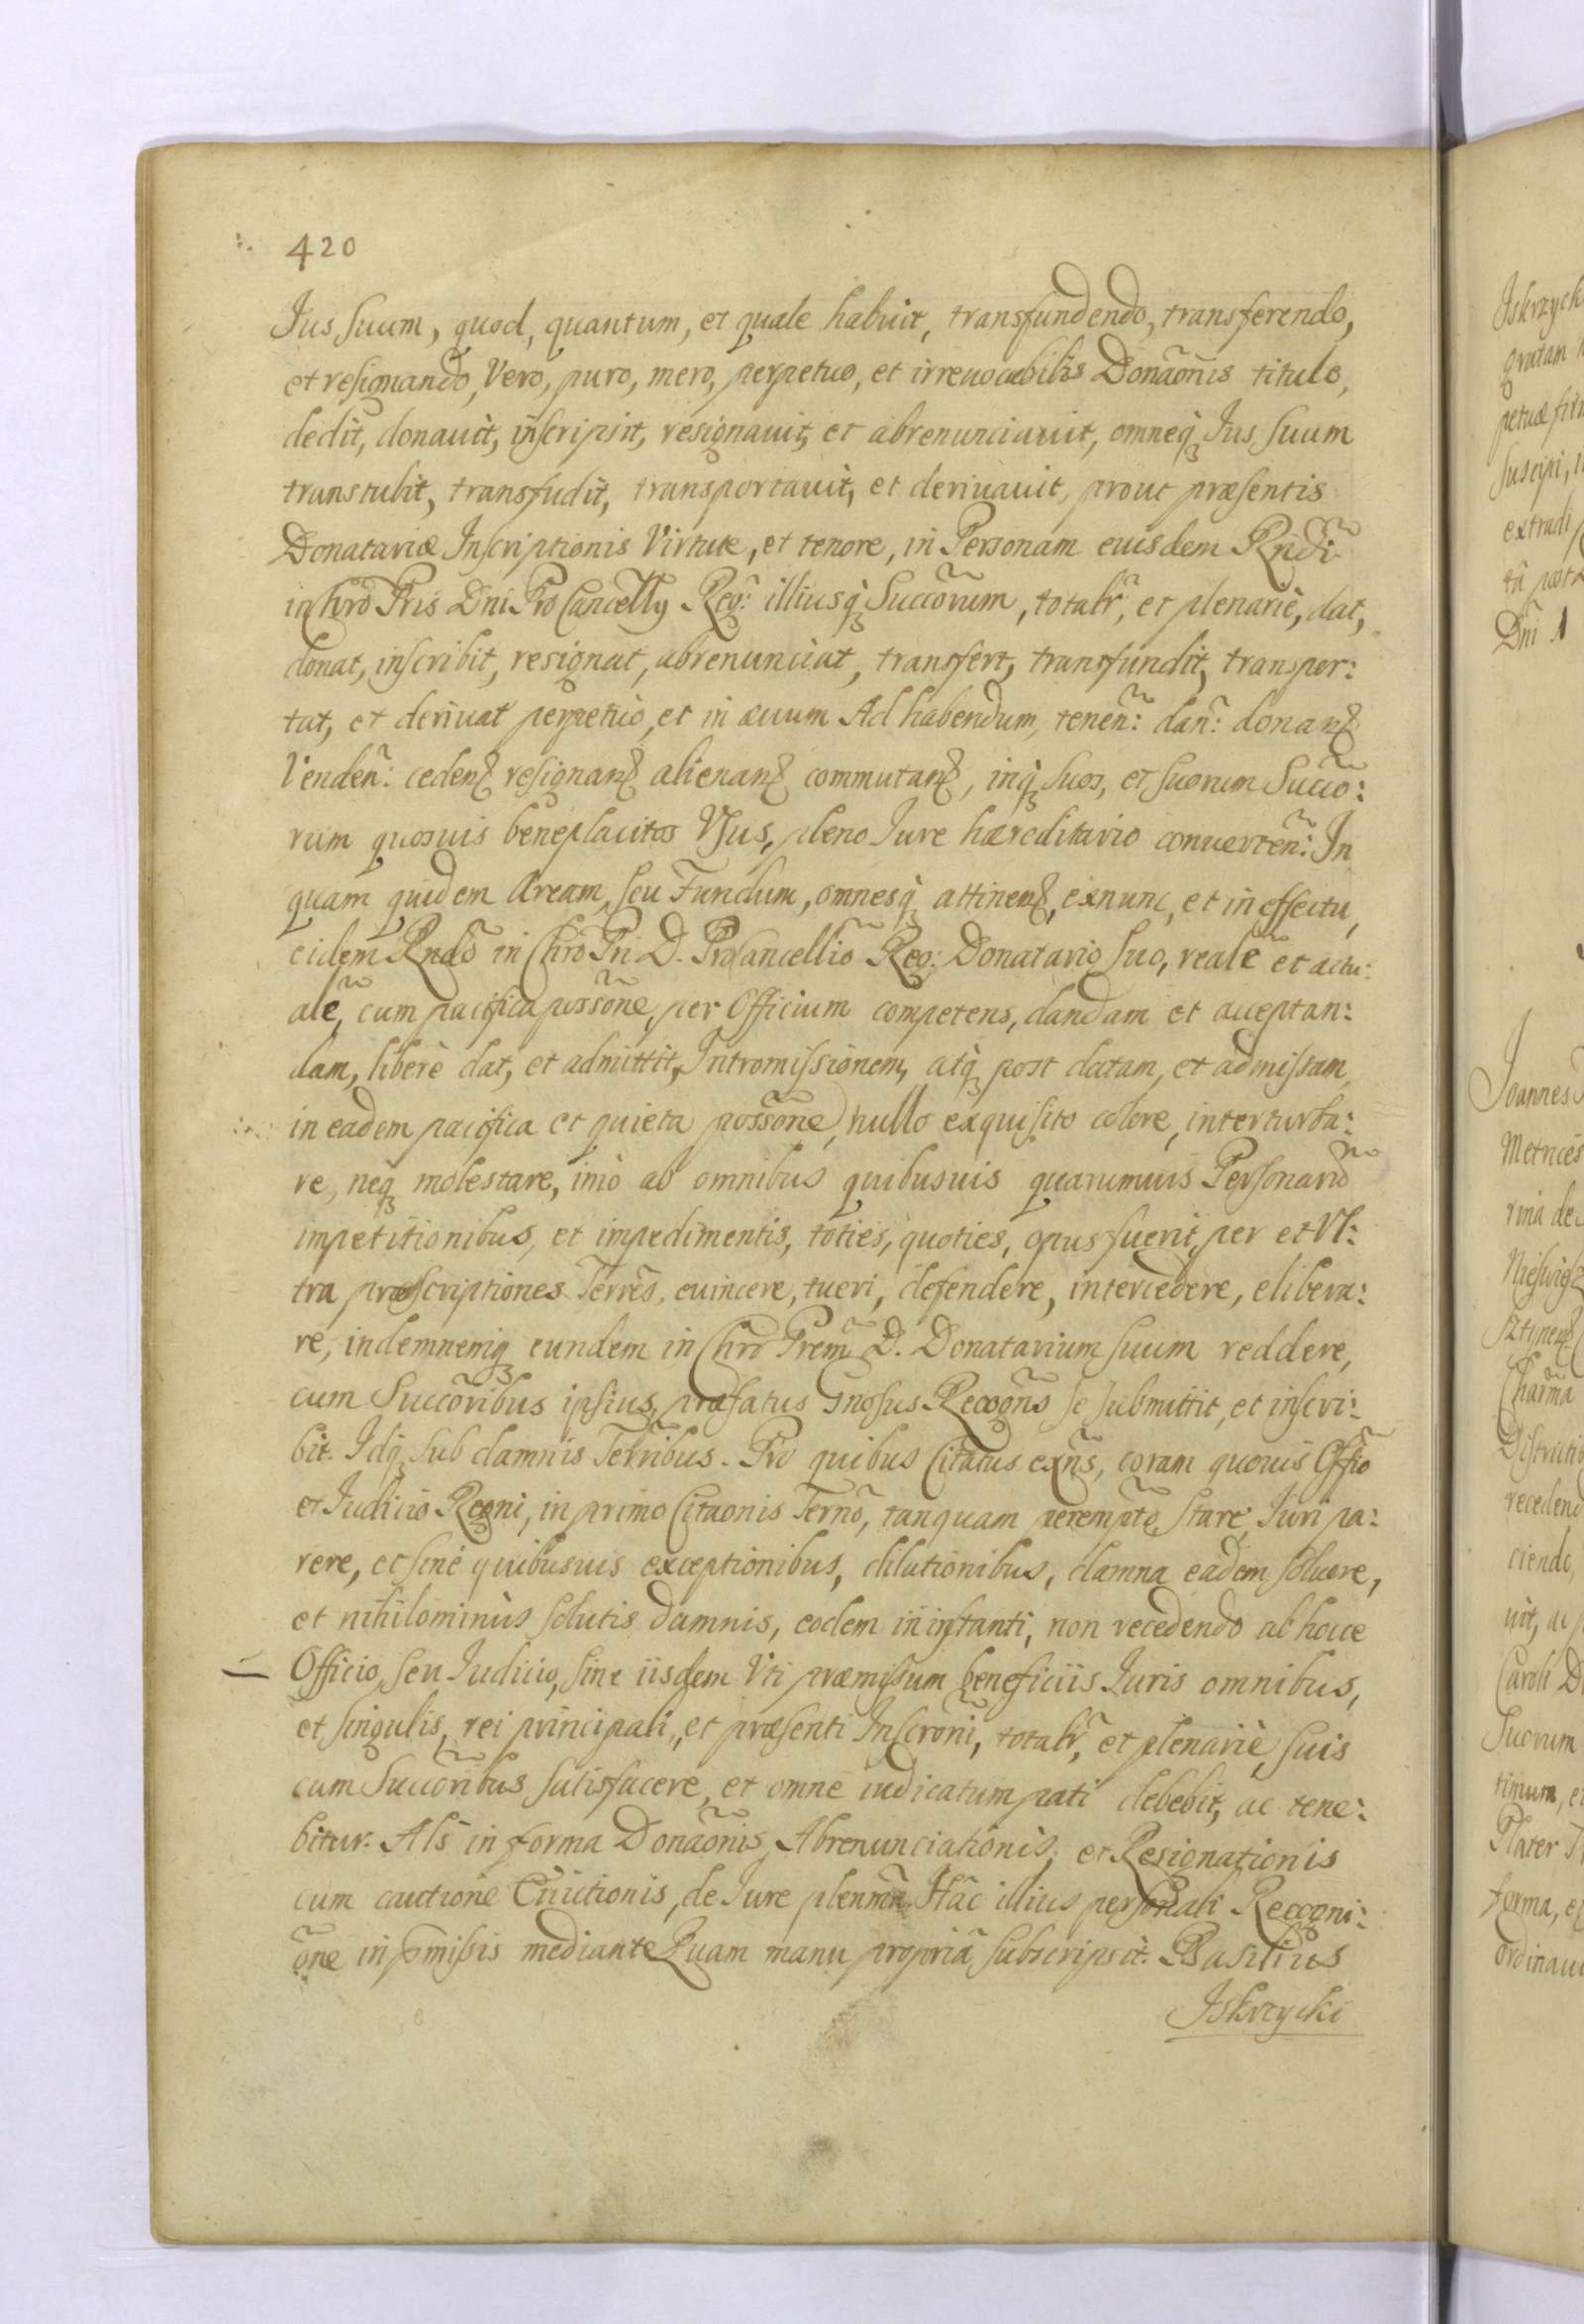 420
Jus suum, quod, quantum, et quale habuit, transfundendo, transferendo,
et resignando, Vero, puro, mero, perpetuo, et irreuocabilis Donãonis titulo,
dedit, donauit, inscripsit, resignauit, et abrenunciauit, omneq̃ Ius suum
transtulit, transfudit, transportauit, et deriuauit, prout præsentis
Donatariæ Inscriptionis Virtute, et tenore, in Personam eiusdem Rndi
in Chro Pris Dni Pro Cancellÿ Reg: illiusq̃ Succõrum, totalr̃, et plenariè, dat,
donat, inscribit, resignat, abrenunciat, transfert, transfundit, transpor:
tat, et deriuat perpetuò, et in æuum Ad habendum, teneñ: dañ: donanꝫ
Vendeñ: cedenꝫ resignanꝫ alienanꝫ commutanꝫ, inq̃ suos, et suorum Succo:
rum quosuis beneplacitos Vsus, pleno Iure hæreditario conuerteñ: In
quam quidem Aream, seu Fundum, omnesq̃ attinenꝫ, exnunc, et in effectu,
eidem Rndõ in Chro Pri D. ProCancellio Reg: Donatario suo, realẽ et actu:
alẽ, cum pacifica possõne, per Officium competens, dandam et acceptan:
dam, liberè dat, et admittit, Intromissionem, atq̃ post datam, et admissam
in eadem pacifica et quieta possõne, nullo exquisito colore, interturba:
re, neq̃ molestare, imò ab omnibus quibusuis quarumuis Personarũ
impetitionibus, et impedimentis, toties, quoties, opus fuerit, per et Vl:
tra præscriptiones Terrẽs, euincere, tueri, defendere, intercedere, elibera:
re, indemnemq̃ eundem in Chro Prem̃ D. Donatarium suum reddere,
cum Succõribus ipsius, præfatus Gnosus Recogñs se submittit, et inscri:
bit. Idq̃ sub damnis Terribus. Pro quibus Citatus exñs, coram quouis Offio
et Iudicio Regni, in primo Citaonis Ternõ, tanquam perempto, stare, Iuri pa:
rere, et sine quibusuis exceptionibus, dilationibus, damna eadem soluere,
et nihilominùs solutis damnis, eodem in instanti, non recedendo ab hocce
Officio, seu Iudicio, sine iisdem Vti præmissum beneficiis Iuris omnibus,
et singulis, rei principali, et præsenti Inscrõni, totalr̃, et plenariè, suis
cum Succõribus, satisfacere, et omne iudicatum pati debebit, ac tene:
bitur. Als in forma Donãonis, Abrenunciationis, et Resignationis
cum cautione Euictionis, de Iure plenma. Hãc illius personali Recogni:
õne in pmissis mediante Quam manu propriâ subscripsit. Basilius
Iskrzycki